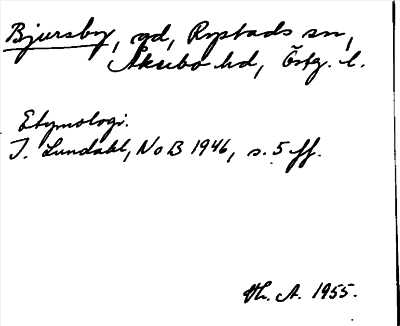 Bjursby, gd, Rystads sn,
Åkerbo hd, Östg. l.
Etymologi.
I. Lundahl, NoB 1946, s. 5 ff.
Vh. A. 1955.